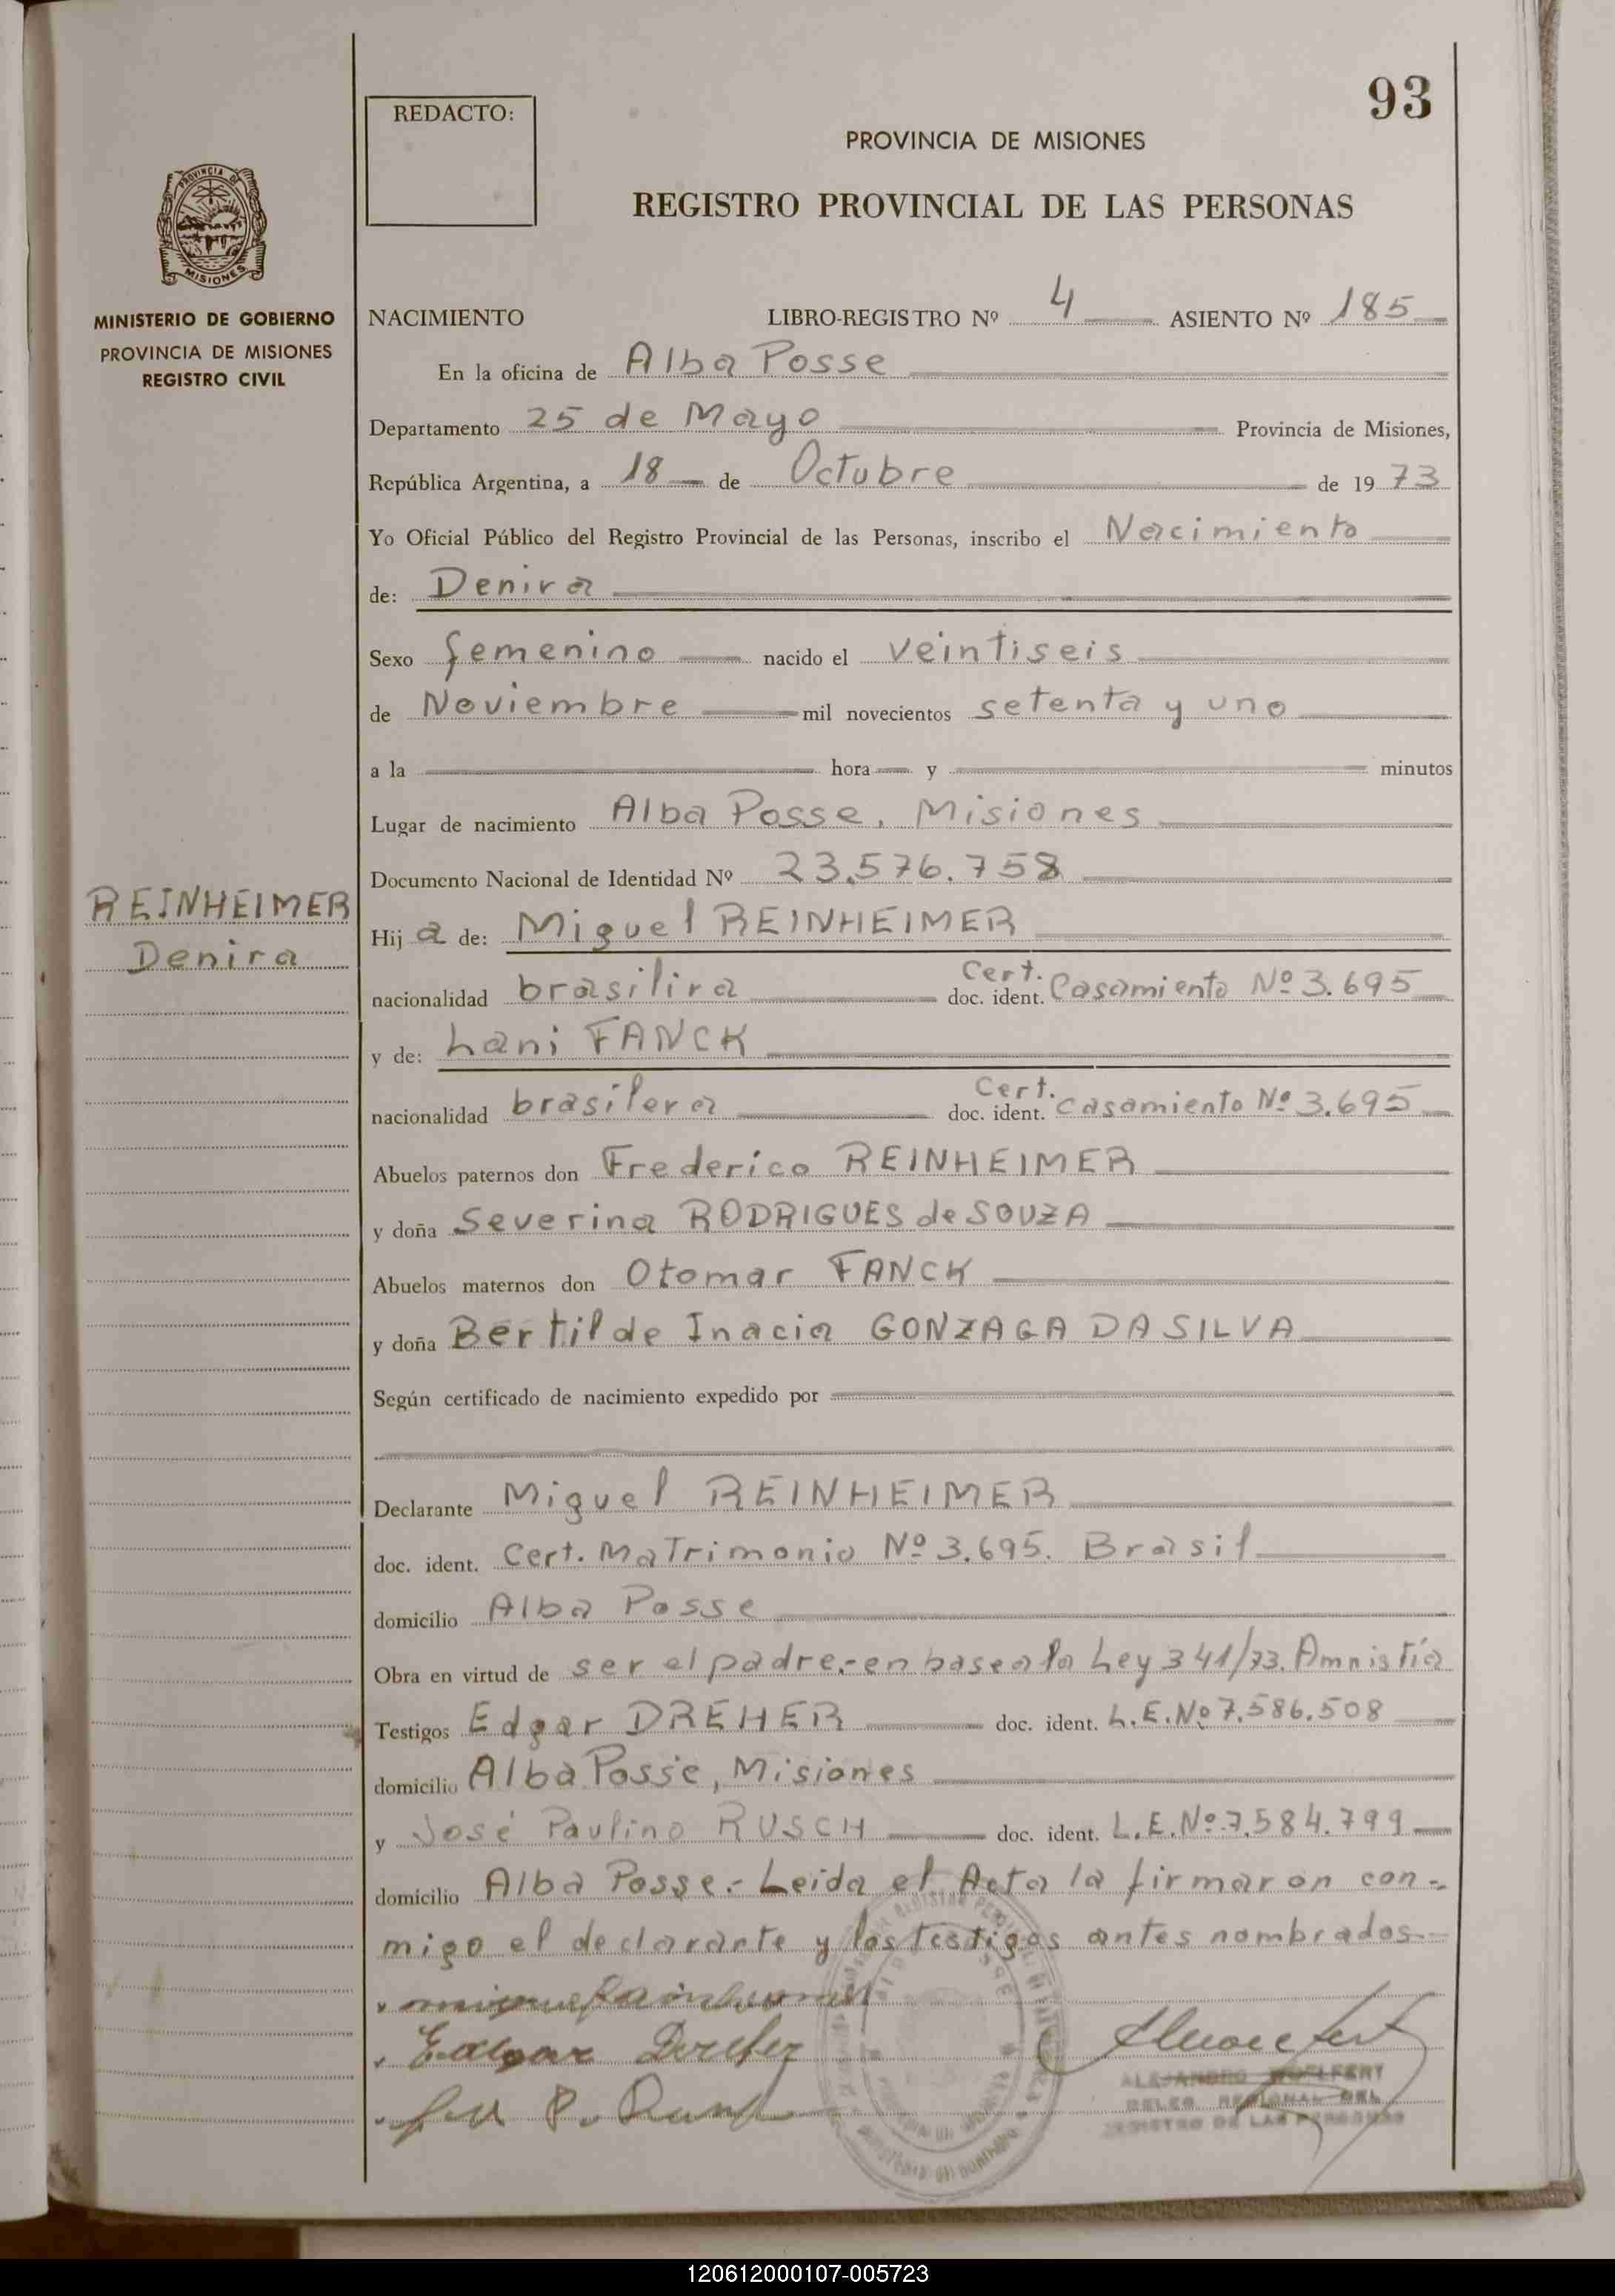 93
REDACTO:
PROVINCIA DE MISIONES
REGISTRO PROVINCIAL DE LAS PERSONAS
PROVINCIA DE
MISIONES
MINISTERIO DE GOBIERNO
PROVINCIA DE MISIONES
REGISTRO CIVIL
NACIMIENTO LIBRO-REGISTRO Nº 4 ASIENTO Nº 185
En la oficina de Alba Posse
Departamento 25 de Mayo Provincia de Misiones,
República Argentina, a 18 de Octubre de 19 73
Yo Oficial Público del Registro Provincial de las Personas, inscribo el Nacimiento
de: Denira
Sexo femenino nacido el veintiseis
de Noviembre mil novecientos setenta y uno
a la hora y minutos
Lugar de nacimiento Alba Posse, Misiones
Documento Nacional de Identidad Nº 23.576.758
REINHEIMER
Denira
Hij a de: Miguel REINHEIMER
nacionalidad brasilira doc. ident. Cert. Casamiento Nº 3.695
y de: Lani FANCK
nacionalidad brasilera doc. ident. Cert. casamiento Nº 3.695
Abuelos paternos don Frederico REINHEIMER
y doña Severina RODRIGUES de SOUZA
Abuelos maternos don Otomar FANCK
y doña Bertilde Inacia GONZAGA DA SILVA
Según certificado de nacimiento expedido por
Declarante Miguel REINHEIMER
doc. ident. Cert. MaTrimonio Nº 3.695. Brasil
domicilio Alba Posse
Obra en virtud de ser el padre.-en base a la Ley 341/73. Amnistía
Testigos Edgar DREHER doc. ident. L.E.Nº 7.586.508
domicilio Alba Posse, Misiones
y José Paulino RUSCH doc. ident. L.E.Nº 7.584.799
domicilio Alba Posse.- Leida el Acta la firmaron con-
migo el declarante y los testigos antes nombrados
Edgar Dreher
ALEJANDRO WOLFERT
DELEG. REGIONAL DEL
REGISTRO DE LAS PERSONAS
120612000107-005723